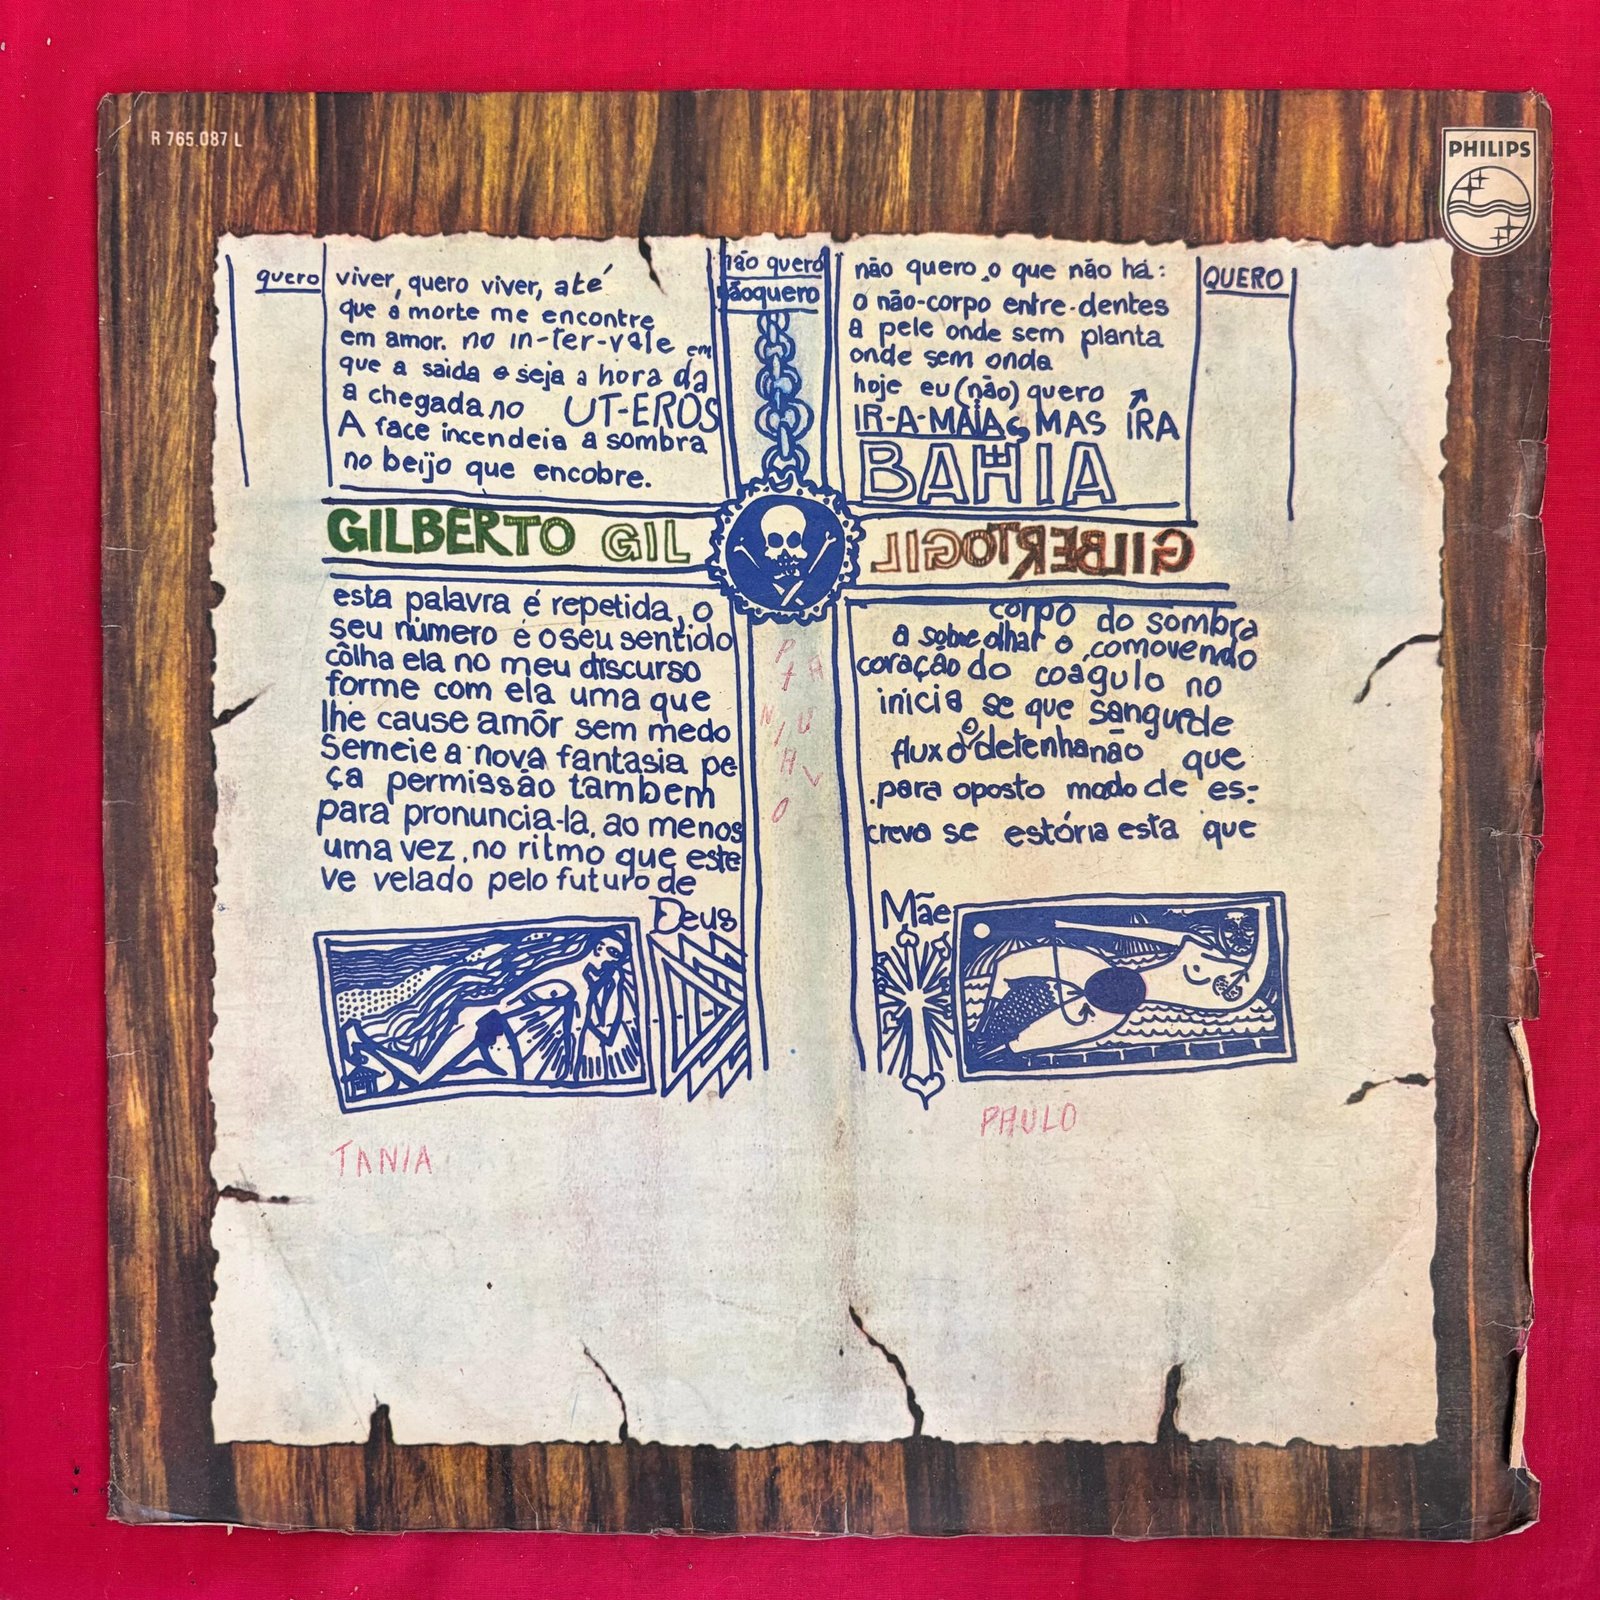 R 765.087 L
PHILIPS
quero
viver, quero viver, até
que a morte me encontre
em amor. no in-ter-vale em
que a saida e seja a hora da
a chegada no UT-EROS
A face incendeia a sombra
no beijo que encobre.
não quero
nãoquero
não quero o que não há:
o não-corpo entre-dentes
a pele onde sem planta
onde sem onda
hoje eu (não) quero
IR-A-MAIA, MAS IRA
BAHIA
QUERO
GILBERTO GIL
GILBERTOGIL
esta palavra é repetida, o
seu número é o seu sentido
côlha ela no meu discurso
forme com ela uma que
lhe cause amôr sem medo
Semeie a nova fantasia pe-
ça permissão tambem
para pronuncia-la, ao menos
uma vez, no ritmo que este
ve velado pelo futuro de
Deus
corpo do sombra
a sobre olhar o comovendo
coração do coagulo no
inicia se que sangue de
fluxo o detenha não que
para oposto modo de es-
creva se estória esta que
Mãe
TANIA
PAULO